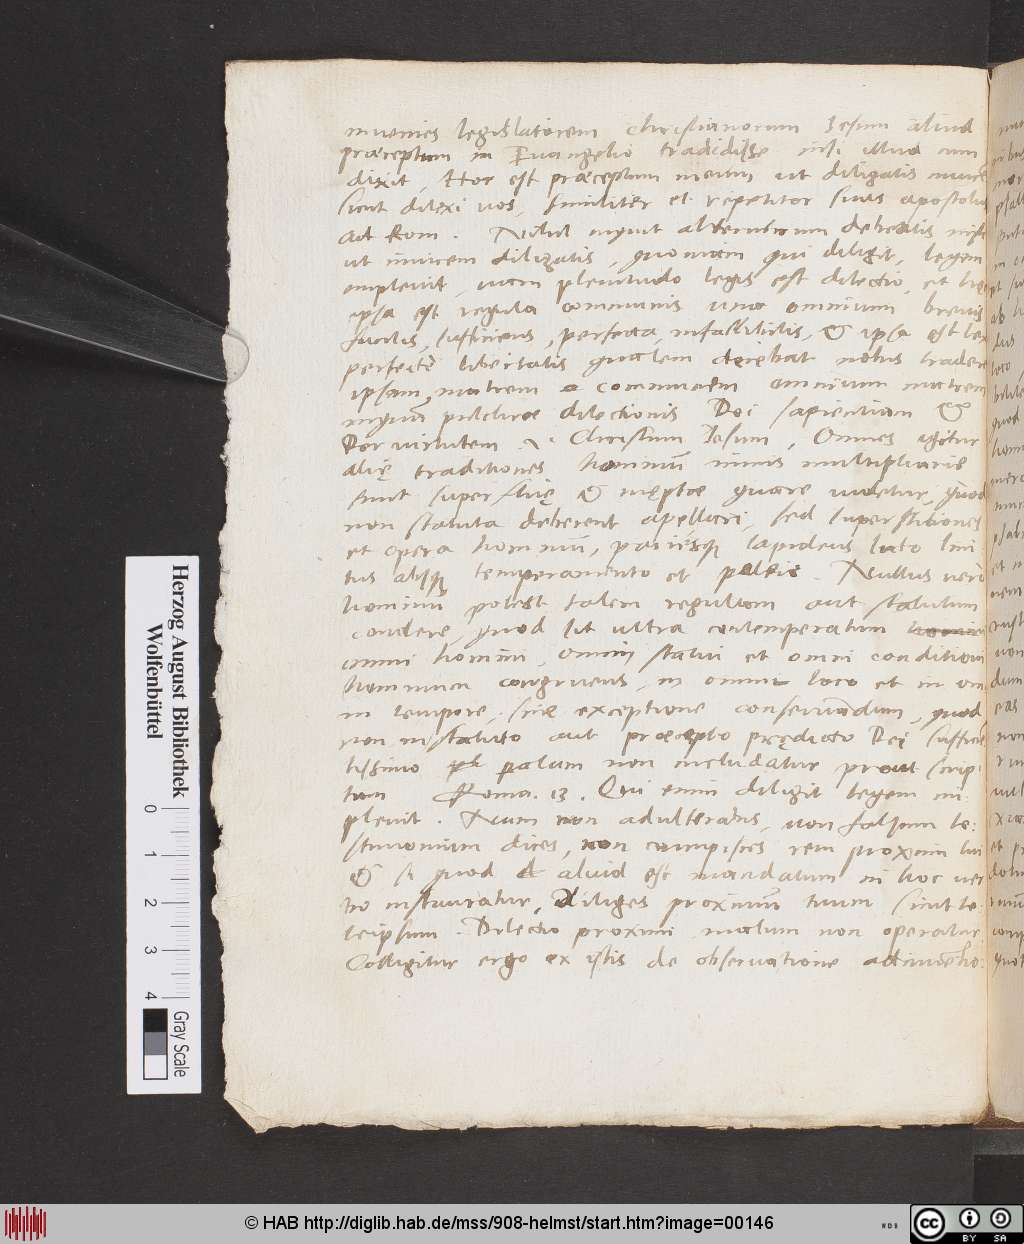 invenies legislatorem christianorum Jesum aliud
præceptum in Evangelio tradidisse nisi illud cum
dixit, Hoc est præceptum meum ut diligatis invicē
sicut dilexi vos, similiter et repetitor suus apostolus
ad Rom. Nihil inquit alterutrum debeatis nisi
ut invicem diligatis, quoniam qui diligit, legem
implevit, nam plenitudo legis est dilectio, et hęc
ipsa est regula communis una omnium brevis
facilis, sufficiens, perfecta, infallibilis, & ipsa est lex
perfectę libertatis qualem decebat nobis tradere
ipsam, matrem communem omnium matrem
inquā pulchræ dilectionis Dei sapientiam &
Dei virtutem .i. Christum Jesum, Omnes igitur
alię traditiones hominū nimis multipliares
sunt superfluę & ineptæ quare videtur, quod
non statuta deberent apellari, sed superstitiones
et opera hominū, pariesque lapideus luto lini
tus absque temperamento et paleis. Nullus vero
hominū potest talem regulam aut statutum
condere, quod sit ultra contemperatum
omni homini, omni statui et omni conditioni
hominum congruens, in omni loco et in omni
in tempore, sine exceptione conservandum, quod
non in statuto aut præcepto prędicto Dei sufficiē
tissimo palam non includatur prout scrip
tum Roma. 13. Qui enim diligit legem im:
plevit. Nam non adulterabis, non falsum te:
stimonium dices, non cumpisces rem proximi tui
& si quod aliud est mandatum in hoc ver
bo instauratur, Diliges proximū tuum sicut te
teipsum. Dilectio proximi malum non operatur
Colligitur ergo ex istis de observatione adinventio:
Herzog August Bibliothek
Wolfenbüttel
0 1 2 3 4
Gray Scale
© HAB http://diglib.hab.de/mss/908-helmst/start.htm?image=00146
WDB
cc BY SA